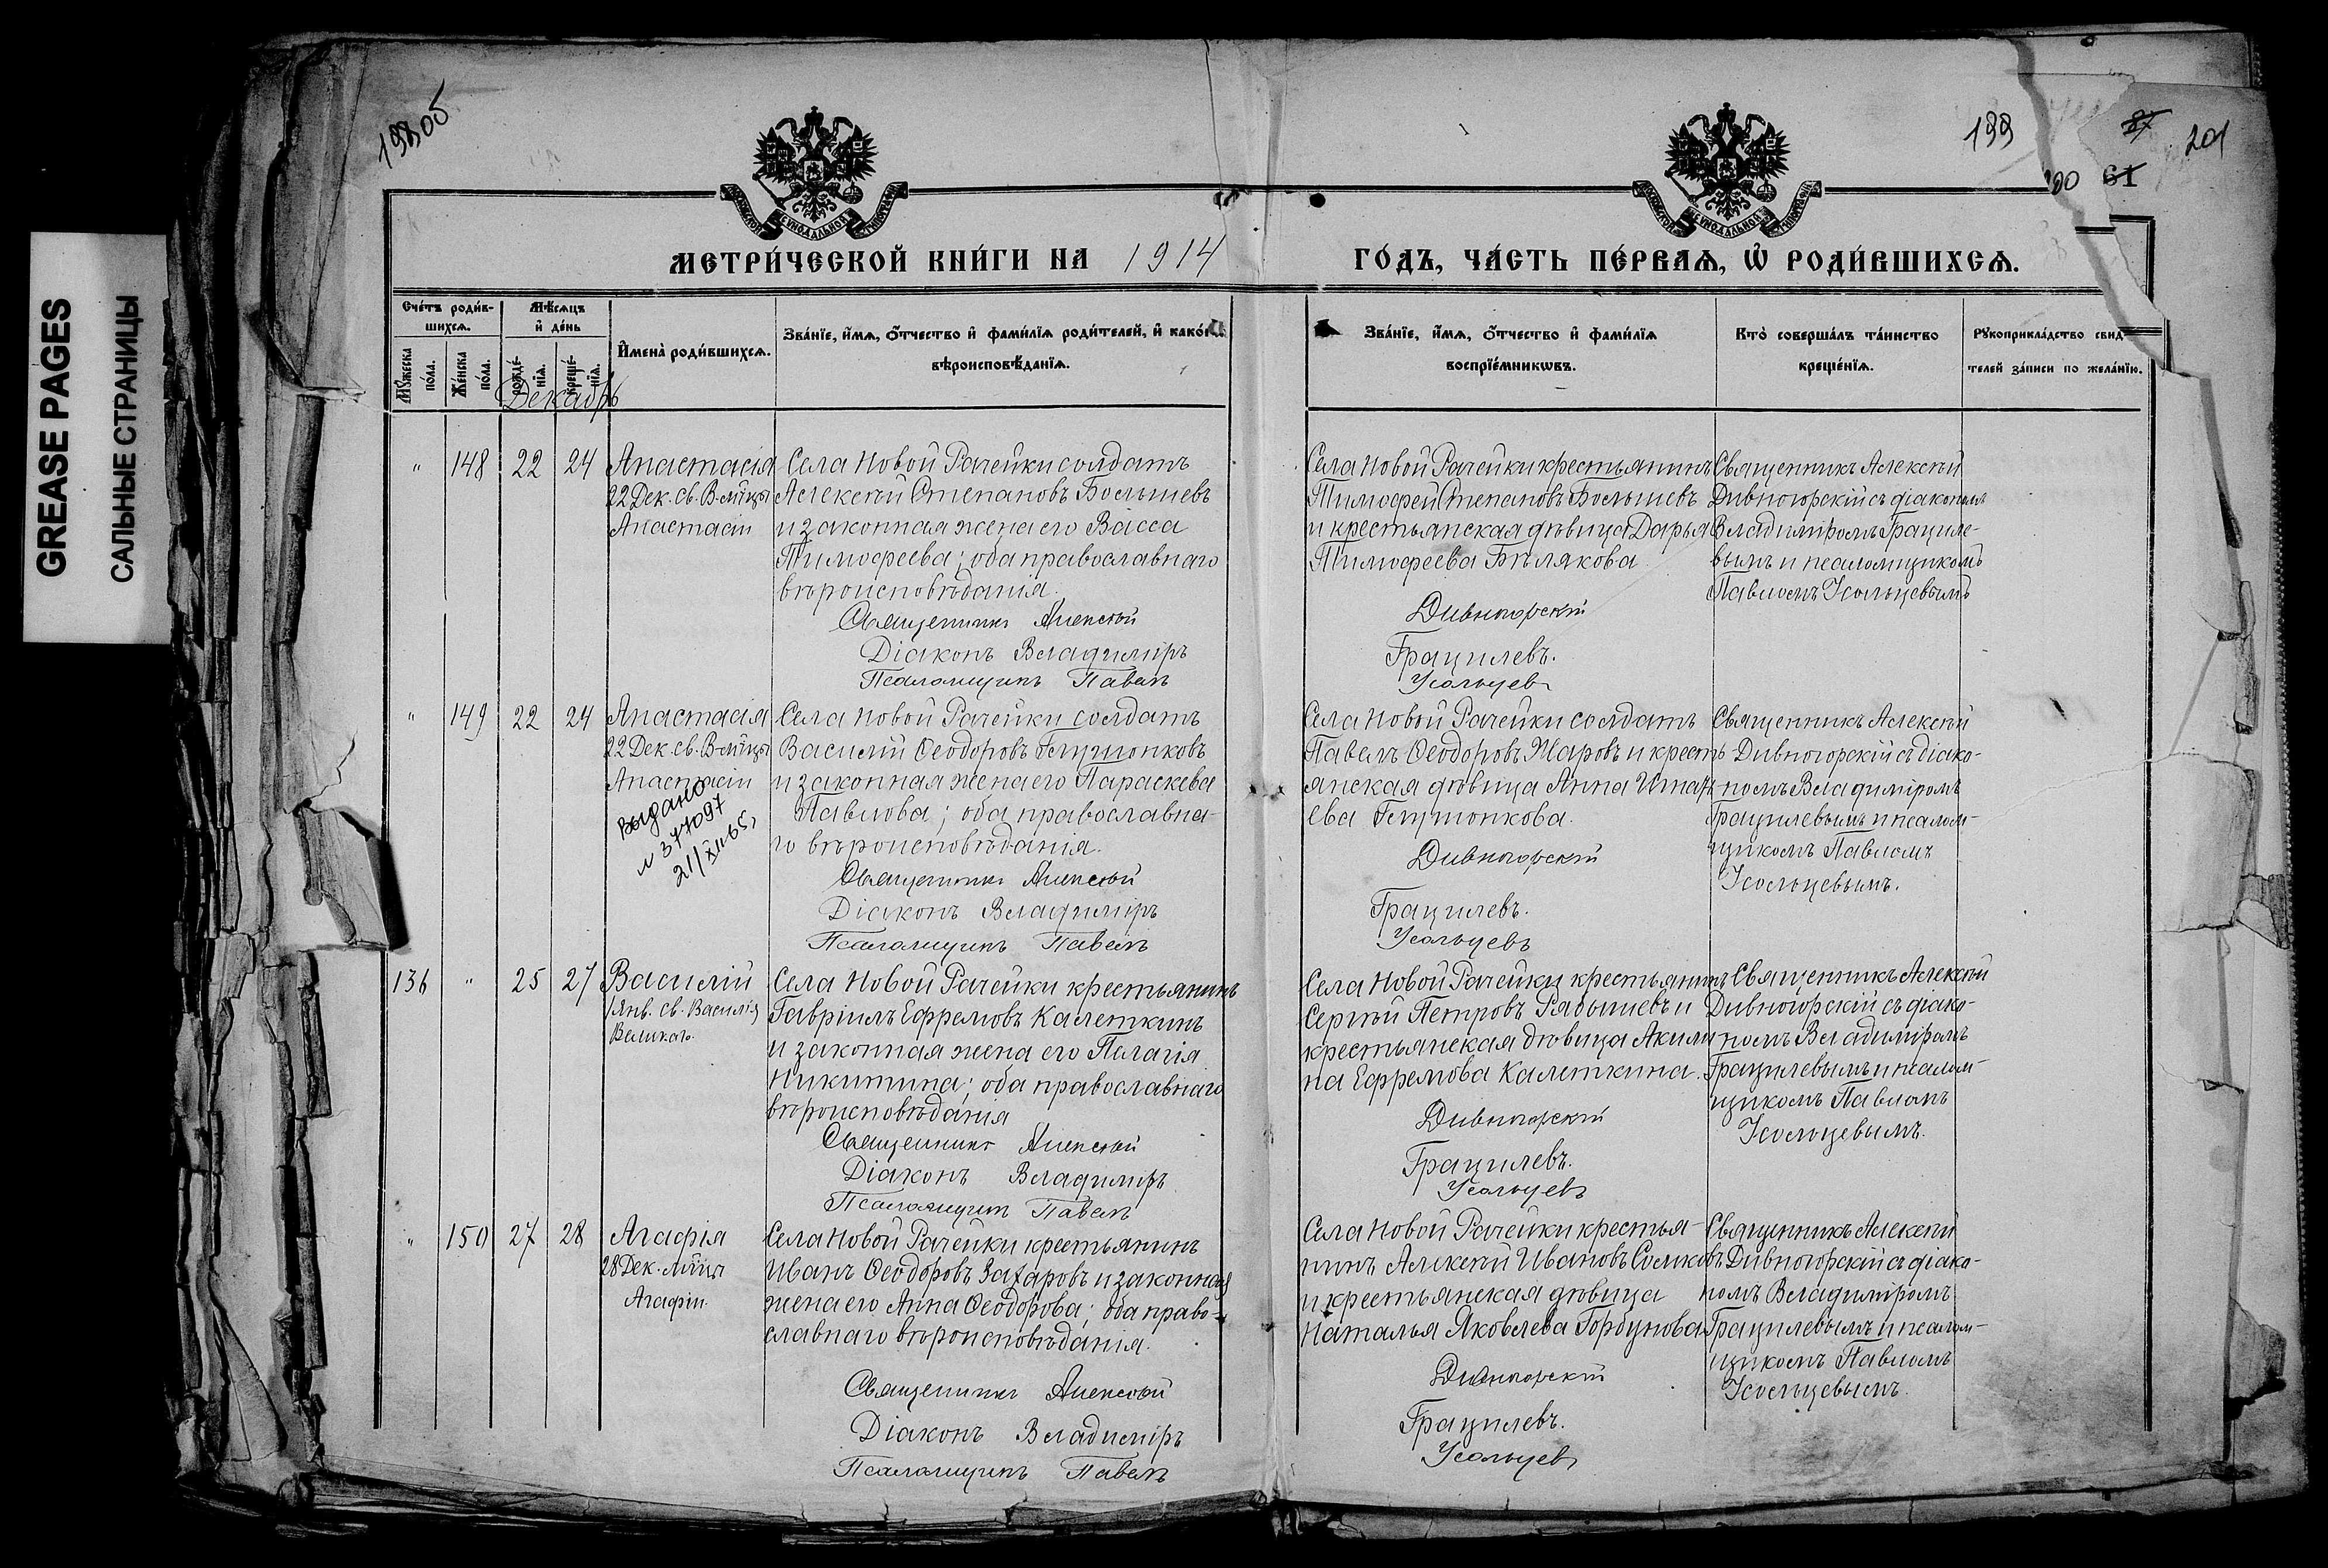 GREASE PAGES
САЛЬНЫЕ СТРАНИЦЫ
199
201
61
МЕТРИ́ЧЕСКОЙ КНИ́ГИ НА 1914
ГО́ДЪ, ЧА́СТЬ ПЕ́РВАѦ, Ѡ҆ РОДИ́ВШИХСѦ.
Сче́тъ роди́в-
шихсѧ.
Мꙋ́жеска по́ла.
Же́нска по́ла.
Мѣ́сѧцъ
и҆ де́нь
рожде́-нїѧ.
креще́-нїѧ.
Декабрь
И҆мена̀ роди́вшихсѧ.
Зва́нїе, и҆́мѧ, ѻ҆́тчество и҆ фами́лїѧ роди́телей, и҆ како́гѡ
вѣроисповѣ́данїѧ.
Зва́нїе, и҆́мѧ, ѻ҆́тчество и҆ фами́лїѧ
воспрїе́мникѡвъ.
Кто̀ соверша́лъ та́инство
креще́нїѧ.
Рꙋкоприкла́дство свид
телей за́писи по жела́нїю.
" 148 22 24
Анастасія
22 Дек. св. В-мцы
Анастасіи
Села Новой Рачейки солдатъ
Алексѣй Степановъ Болышевъ
и законная жена его Васса
Тимофеева; оба православнаго
вѣроисповѣданія.
Священникъ Алексѣй
Діаконъ Владиміръ
Псаломщикъ Павелъ
Села Новой Рачейки крестьянинъ
Тимофей Степановъ Болышевъ
и крестьянская дѣвица Дарья
Тимофеева Бѣлякова
Дивногорскій
Грацилевъ.
Усольцевъ
Священникъ Алексѣй
Дивногорскій съ діакономъ
Владиміромъ Грациле-
вымъ и псаломщикомъ
Павломъ Усольцевымъ
" 149 22 24
Анастасія
22 Дек. св. В-мцы
Анастасіи
Выдано
№ 377097
21/XII 65
Села Новой Рачейки солдатъ
Василій Ѳеодоровъ Глушонковъ
и законная жена его Параскева
Павлова; оба православна-
го вѣроисповѣданія.
Священникъ Алексѣй
Діаконъ Владиміръ
Псаломщикъ Павелъ
Села Новой Рачейки солдатъ
Павелъ Ѳеодоровъ Жаровъ и кресть
янская дѣвица Анна Игнать
ева Глушонкова.
Дивногорскій
Грацилевъ.
Усольцевъ
Священникъ Алексѣй
Дивногорскій съ діако-
номъ Владиміромъ
Грацилевымъ и псалом-
щикомъ Павломъ
Усольцевымъ.
136 " 25 27
Василій
1 Янв. св. Василія
Великаго.
Села Новой Рачейки крестьянинъ
Гавріилъ Ефремовъ Калеткинъ
и законная жена его Пелагія
Никитина; оба православнаго
вѣроисповѣданія
Священникъ Алексѣй
Діаконъ Владиміръ
Псаломщикъ Павелъ
Села Новой Рачейки крестьянинъ
Сергѣй Петровъ Рябышевъ и
крестьянская дѣвица Акили
на Ефремова Калеткина.
Дивногорскій
Грацилевъ.
Усольцевъ
Священникъ Алексѣй
Дивногорскій съ діако-
номъ Владиміромъ
Грацилевымъ и псалом-
щикомъ Павломъ
Усольцевымъ.
" 150 27 28
Агафія
28 Дек. м-цы
Агафіи.
Села Новой Рачейки крестьянинъ
Иванъ Ѳеодоровъ Захаровъ и законная
жена его Анна Ѳеодорова; оба право-
славнаго вѣроисповѣданія.
Священникъ Алексѣй
Діаконъ Владиміръ
Псаломщикъ Павелъ
Села Новой Рачейки крестья-
нинъ Алексѣй Ивановъ Солковъ
и крестьянская дѣвица
Наталья Яковлева Горбунова
Дивногорскій
Грацилевъ.
Усольцевъ
Священникъ Алексѣй
Дивногорскій съ діако-
номъ Владиміромъ
Грацилевымъ и псалом-
щикомъ Павломъ
Усольцевымъ.